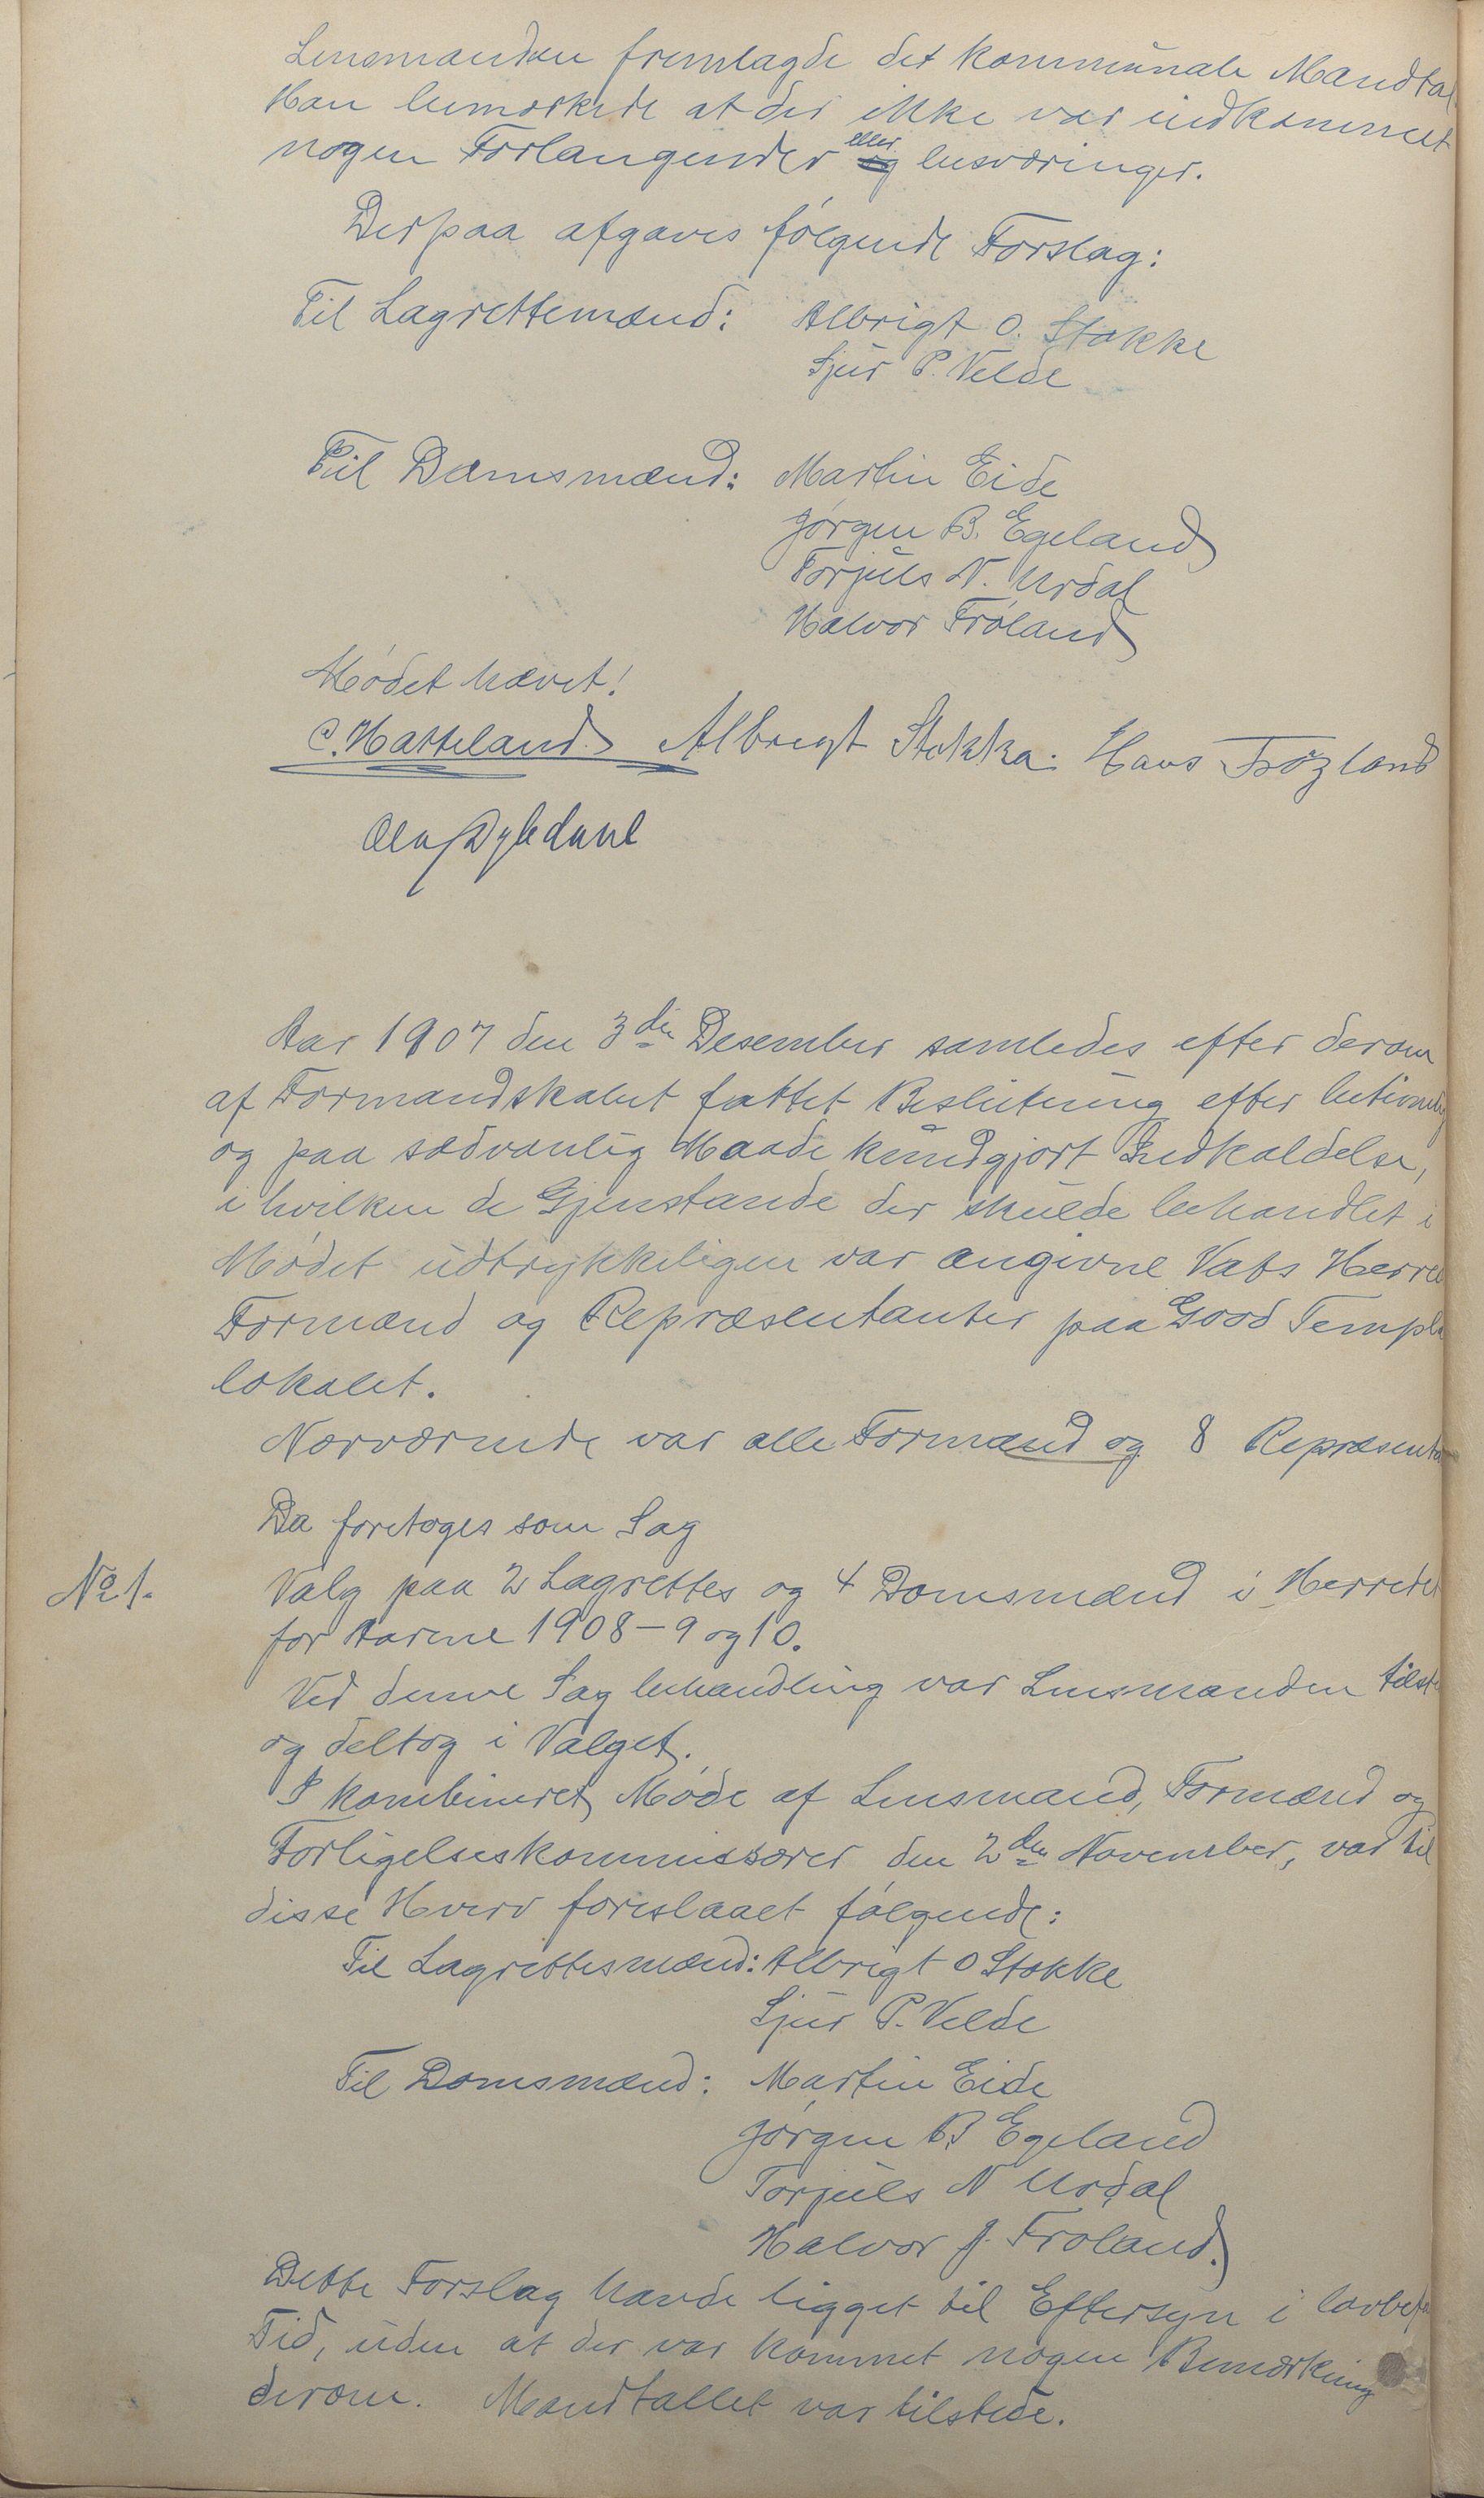 Lensmanden fremlagde det kommunale Mandtal.
Han bemærkede at der ikke var indkommet
nogen Forlangender eller besværinger.
Derpaa afgaves følgende Forslag:
Til Lagrettemænd: Albrigt O. Stokke
Sjur P. Velde
Til Domsmænd: Martin Eide
Jørgen B. Egeland
Torjuls N. Urdal
Halvor Frøland
Mødet hævet!
C. Hatteland Albregt Stokka. Hans Frøyland
Olaf
Aar 1907 den 3die Desember samledes efter derom
af Formandskabet fattet Beslutning efter betimelig
og paa sædvanlig Maade kundgjort Indkaldelse,
i hvilken de Gjenstande der skulde behandlet i
Mødet udtrykkeligen var angivne Vats Herreds
Formænd og Repræsentanter paa Good Templa
lokalet.
Nærværende var alle Formænd og 8 Repræsenta
Da foretoges som Sag
No 1. Valg paa 2 Lagrettes og 4 Domsmænd i Herredet
for Aarene 1908-9 og 10.
Ved denne Sag behandling var Lensmanden tilste
og deltog i Valget.
I kombineret Møde af Lensmand, Formænd og
Forligelseskommissærer den 2den November, var til
disse Hverv foreslaaet følgende:
Til Lagrettesmænd: Albrigt O Stokke
Sjur P. Velde
Til Domsmænd: Martin Eide
Jørgen B. Egeland
Torjuls N Urdal
Halvor J. Frøland.
Dette Forslag havde ligget til Eftersyn i lovbefa
Tid, uden at der var kommet nogen Bemærkning
derom. Mandtallet var tilstede.